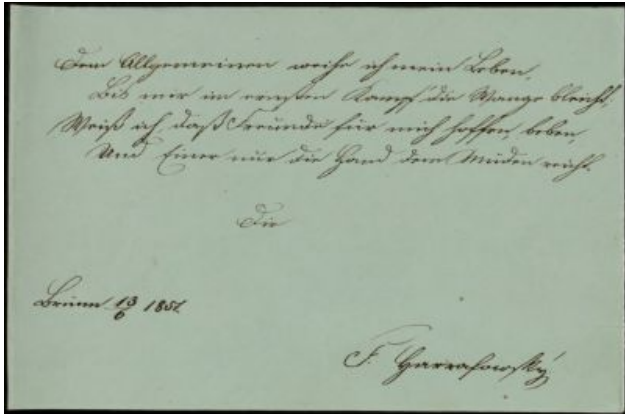 Dem Allgemeinen weihe ich mein Leben,
Bis mir im ernsten Kampf die Wange bleicht;
Weiß ich, daß Freunde für mich hoffen, beben,
Und Einer nur die Hand dem Müden reicht.
Die
Brünn 13/6 1857
F.